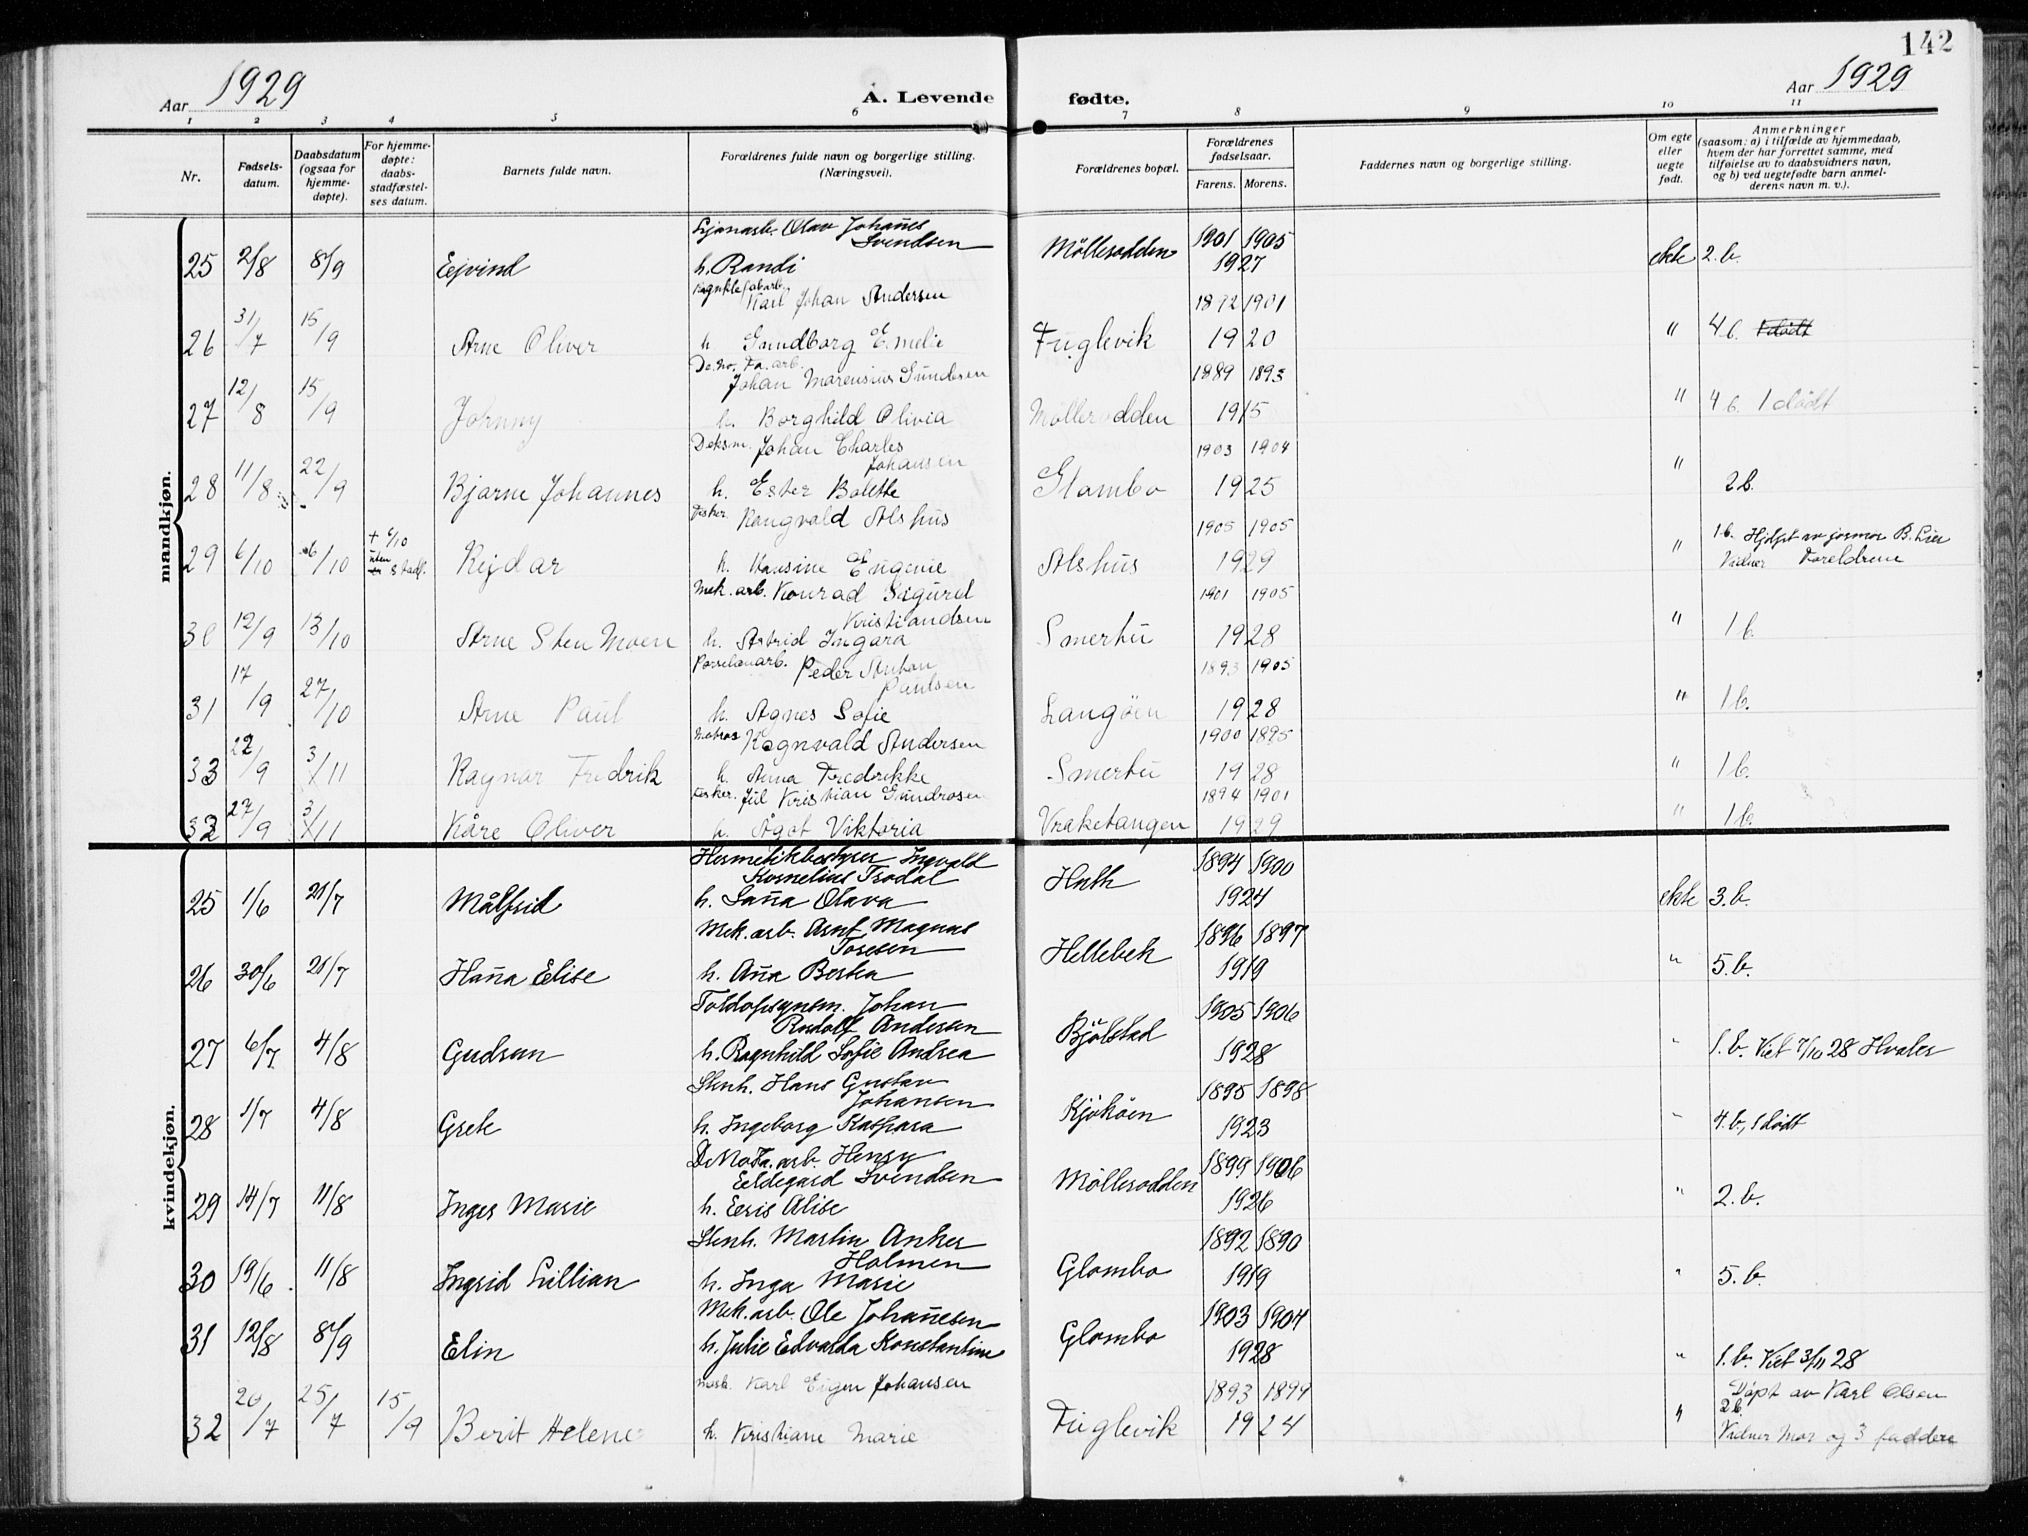 142
Aar 1929 A. Levende fødte. Aar 1929
1 2 3 4 5 6 7 8 9 10 11
Nr. Fødsels-datum. Daabsdatum (ogsaa for hjemme-døpte). For hjemme-døpte: daabs-stadfæstel-ses datum. Barnets fulde navn. Forældrenes fulde navn og borgerlige stilling. (Næringsvei). Forældrenes bopæl. Forældrenes fødselsaar. Farens. Morens. Faddernes navn og borgerlige stilling. Om egte eller uegte født. Anmerkninger (saasom: a) i tilfælde av hjemmedaab, hvem der har forrettet samme, med tilføielse av to daabsvidners navn, og b) ved uegtefødte barn anmel-derens navn m. v.).
mandkjøn.
Olav Johañes
Svendsen 1901 1905
25 2/8 8/9 Ejvind h. Randi Møllerodden 1927 ekte 2.b.
Karl Johan Andersen 1892 1901
26 31/7 15/9 Arne Oliver h. Gundborg Emelie Fuglevik 1920 " 4 b. 1 dødt
De.No.Fa.arb.
Johan Marensius Gundesen 1889 1893
27 12/8 15/9 Johnny h. Borghild Olivia Møllerodden 1915 " 4 b. 1 dødt
Deksm. Johan Charles
Johansen 1903 1904
28 11/8 22/9 Bjarne Johannes h. Ester Bolette Glombo 1925 " 2 b.
Fisker Rangvald Alshus 1905 1905
29 6/10 6/10 + 6/10 uten stadf. Rejdar h. Hansine Eugenie Alshus 1929 " 1 b. Hjdpt av jormor B. Lier
Vidner Foreldrene
Mek. arb. Konrad Sigurd
Kristiandsen 1901 1905
30 12/9 13/10 Arne Sten Moen h. Astrid Ingara Smertu 1928 " 1 b.
Porselenarb. Peder Anton
Paulsen 1893 1905
31 17/9 27/10 Arne Paul h. Agnes Sofie Langøen 1928 " 1 b.
Matros Ragnvald Andersen 1900 1895
33 22/9 3/11 Ragnar Fredrik h. Anna Fredrikke Smertu 1928 " 1 b.
Fisker. Jul Kristian Gundrosen 1894 1901
32 27/9 3/11 Kåre Oliver h. Ågot Viktoria Vraketangen 1929 " 1 b.
kvindekjøn.
Hermetikbestyrer Ingvald
Kornelius Trodal 1894 1900
25 1/6 21/7 Målfrid h. Sañna Olava Huth 1924 ekte 3.b.
Mek. arb. Arnt Magnus
Toresen 1896 1897
26 30/6 21/7 Haña Elise h. Aña Bertea Hellebek 1919 " 5.b.
Toldopsynsm. Johan
Rudolf Andersen 1905 1906
27 6/7 4/8 Gudrun h. Ragnhild Sofie Andrea Bjølstad 1928 " 1.b. Viet 7/10 28 Hvaler
Stenh. Hans Gustav
Johansen 1895 1898
28 1/7 4/8 Grete h. Ingeborg Kaspara Kjøkøen 1923 " 4.b., 1 dødt
DeNoFa.arb. Henry
Eeldegard Svendsen 1899 1906
29 14/7 11/8 Inger Marie h. Eeris Alise Møllerodden 1926 " 2.b.
Stenh. Martin Anker
Holmen 1892 1890
30 19/6 11/8 Ingrid Lillian h. Inga Marie Glombo 1919 " 5.b.
Mek. arb. Ole Johañesen 1903 1904
31 12/8 8/9 Elin h. Julie Edvarda Konstantine Glombo 1928 " 1.b. Viet 3/11 28
Mask. Karl Eugen Johansen 1893 1899 Døpt av Karl Olsen
32 20/7 25/7 15/9 Berit Helene h. Kristiane Marie Fuglevik 1924 " 2 b.
Vidner Mor og 3 faddere